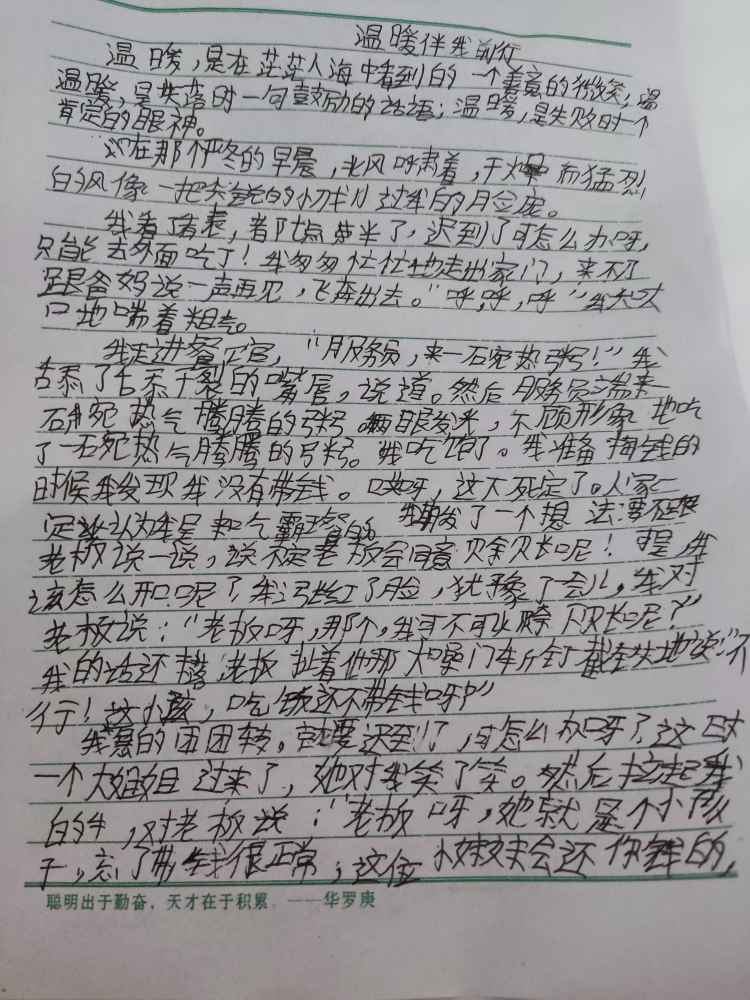 温暖伴我前行
温暖,是在茫茫人海中看到的一个善意的微笑;温
温暖,是失落时一句鼓励的话语;温暖,是失败时一个
肯定的眼神。
在那个严冬的早晨,北风呼肃着,干燥而猛烈
的风像一把尖锐的小刀刂过我的脸庞。
我看了看表,都七点半了,迟到了可怎么办呀,
只能去外面吃了!我匆匆忙忙地走出家门,来不及
跟爸妈说一声再见,飞奔出去。"呼,呼,呼"我大口大
口地喘着粗气。
我走进餐馆,"服务员,来一碗热粥!"我
舔了舔干裂的嘴唇,说道。然后服务员端来一
碗热气腾腾的粥。两眼发光,不顾形象地吃
了一碗热气腾腾的粥。我吃饱了。我准备掏钱的
时候我发现我没有带钱。哎呀,这下死定了。人家一
定认为我是来吃霸王餐的。我萌发了一个想法要不跟
老板说一说,说不定老板会同意赊账呢!可是,我
该怎么开口呢?我涨红了脸,犹豫了会儿,我对
老板说:"老板呀,那个,我可不可以赊账呢?"
我的话还落老板扯着他那大嗓门斩钉截铁地说:"不
行!这小孩,吃饭还不带钱呀!"
我急的团团转。就要迟到了,可怎么办呀?这时
一个大姐姐过来了,她对我笑了笑。然后拉起我
的手,对老板说:"老板呀,她就是个小孩
子,忘了带钱很正常;这位小妹妹会还你钱的,
聪明出于勤奋,天才在于积累。——华罗庚